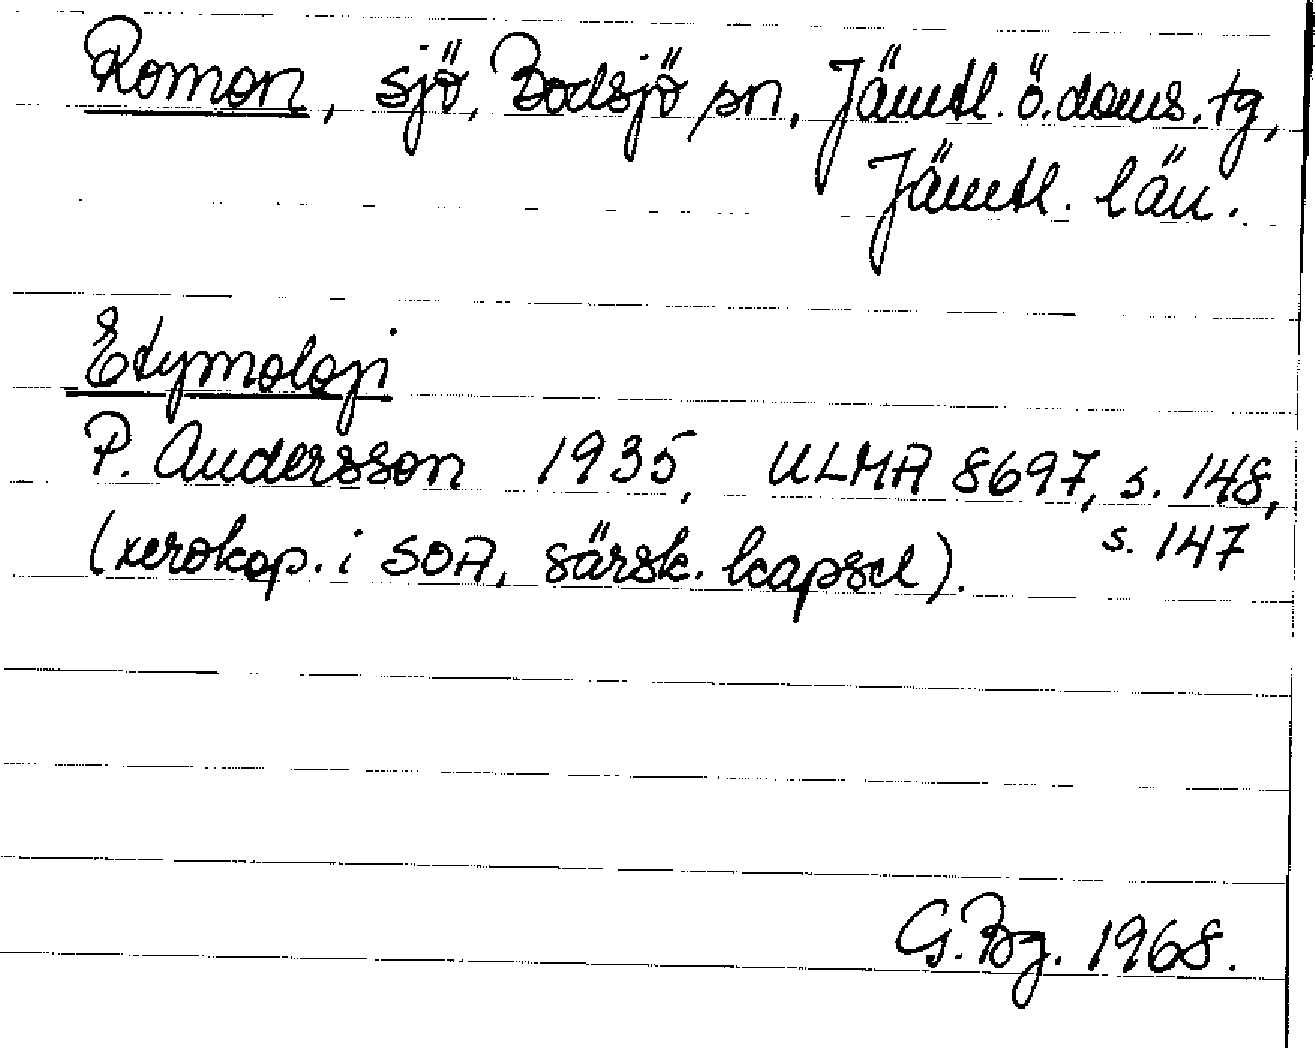 Romon, sjö, Bodsjö sn, Jämtl. ö. doms. tg,
Jämtl. län.
Etymologi
P. Andersson 1935, ULMA 8697, s. 148,
s. 147
(xerokop. i SOA, särsk. kapsel).
G. Bg. 1968.